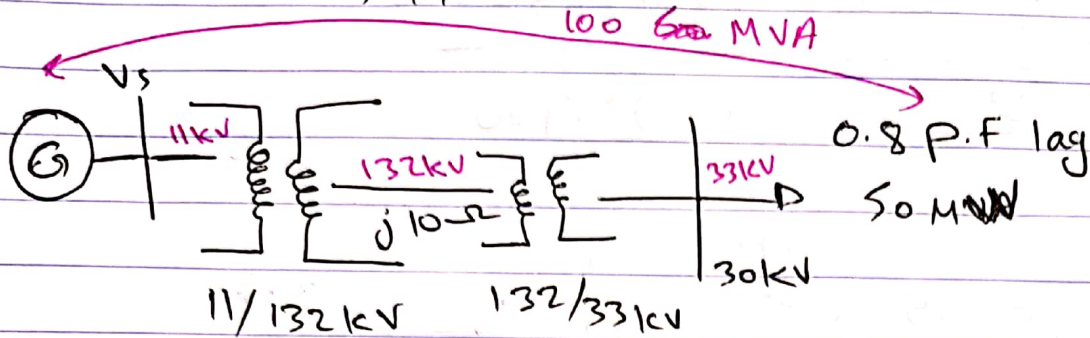 100 MVA
Vs
G
11kV
132kV
j10Ω
33kV
0.8 P.F lag
50 M
30kV
11/132kV
132/33kV